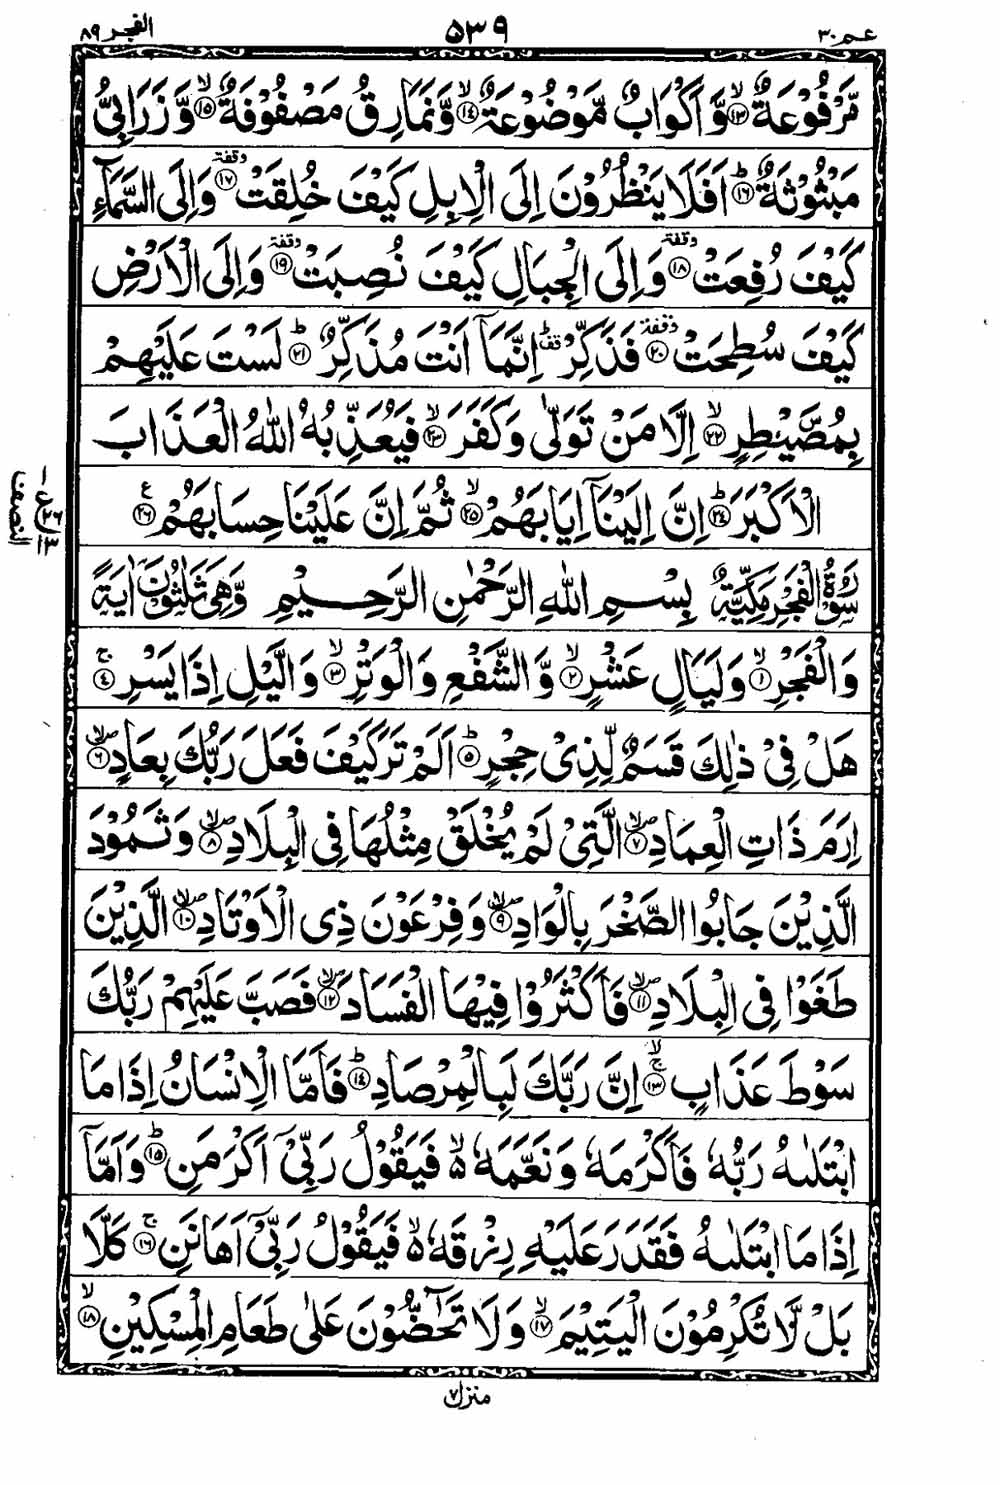 عم ٣٠ ٥٣٩ الفجر ٨٩
مَّرْفُوْعَةٌ ۙ‏﴿۱۳﴾ وَّ اَكْوَابٌ مَّوْضُوْعَةٌ ۙ‏﴿۱۴﴾ وَّنَمَارِقُ مَصْفُوْفَةٌ ۙ‏﴿۱۵﴾ وَّ زَرَابِيُّ
مَبْثُوْثَةٌ ؕ‏﴿۱۶﴾ اَفَلَا يَنْظُرُوْنَ اِلَى الْاِبِلِ كَيْفَ خُلِقَتْ وقفة ﴿۱۷﴾ وَاِلَى السَّمَآءِ
كَيْفَ رُفِعَتْ وقفة ﴿۱۸﴾ وَاِلَى الْجِبَالِ كَيْفَ نُصِبَتْ وقفة ﴿۱۹﴾ وَاِلَى الْاَرْضِ
كَيْفَ سُطِحَتْ وقفة ﴿۲۰﴾ فَذَكِّرْ قف اِنَّمَاۤ اَنْتَ مُذَكِّرٌ ؕ‏﴿۲۱﴾ لَسْتَ عَلَيْهِمْ
بِمُصَۜيْطِرٍ ۙ‏﴿۲۲﴾ اِلَّا مَنْ تَوَلّٰى وَكَفَرَ ۙ‏﴿۲۳﴾ فَيُعَذِّبُهُ اللّٰهُ الْعَذَابَ
الْاَكْبَرَ ؕ‏﴿۲۴﴾ اِنَّ اِلَيْنَاۤ اِيَابَهُمْ ۙ‏﴿۲۵﴾ ثُمَّ اِنَّ عَلَيْنَا حِسَابَهُمْ ﴿۲۶﴾ ع
النصف
سُوْرَةُ الْفَجْرِ مَكِّيَّةٌ بِسْمِ اللّٰهِ الرَّحْمٰنِ الرَّحِيْمِ وَّهِيَ ثَلٰثُوْنَ اٰيَةً
وَالْفَجْرِ ۙ‏﴿۱﴾ وَلَيَالٍ عَشْرٍ ۙ‏﴿۲﴾ وَّالشَّفْعِ وَالْوَتْرِ ۙ‏﴿۳﴾ وَالَّيْلِ اِذَا يَسْرِ ۚ‏﴿۴﴾
هَلْ فِيْ ذٰلِكَ قَسَمٌ لِّذِيْ حِجْرٍ ؕ‏﴿۵﴾ اَلَمْ تَرَ كَيْفَ فَعَلَ رَبُّكَ بِعَادٍ ۪ۙ‏﴿۶﴾
اِرَمَ ذَاتِ الْعِمَادِ ۪ۙ‏﴿۷﴾ الَّتِيْ لَمْ يُخْلَقْ مِثْلُهَا فِي الْبِلَادِ ۪ۙ‏﴿۸﴾ وَثَمُوْدَ
الَّذِيْنَ جَابُوا الصَّخْرَ بِالْوَادِ ۪ۙ‏﴿۹﴾ وَفِرْعَوْنَ ذِي الْاَوْتَادِ ۪ۙ‏﴿۱۰﴾ الَّذِيْنَ
طَغَوْا فِي الْبِلَادِ ۪ۙ‏﴿۱۱﴾ فَاَكْثَرُوْا فِيْهَا الْفَسَادَ ۪ۙ‏﴿۱۲﴾ فَصَبَّ عَلَيْهِمْ رَبُّكَ
سَوْطَ عَذَابٍ ۚۙ‏﴿۱۳﴾ اِنَّ رَبَّكَ لَبِالْمِرْصَادِ ؕ‏﴿۱۴﴾ فَاَمَّا الْاِنْسَانُ اِذَا مَا
ابْتَلٰىهُ رَبُّهٗ فَاَكْرَمَهٗ وَنَعَّمَهٗ ۙ۬ فَيَقُوْلُ رَبِّيْۤ اَكْرَمَنِ ؕ‏﴿۱۵﴾ وَاَمَّاۤ
اِذَا مَا ابْتَلٰىهُ فَقَدَرَ عَلَيْهِ رِزْقَهٗ ۙ۬ فَيَقُوْلُ رَبِّيْۤ اَهَانَنِ ۚ‏﴿۱۶﴾ كَلَّا
بَلْ لَّا تُكْرِمُوْنَ الْيَتِيْمَ ۙ‏﴿۱۷﴾ وَلَا تَحٰٓضُّوْنَ عَلٰى طَعَامِ الْمِسْكِيْنِ ۙ‏﴿۱۸﴾
منزل ٧